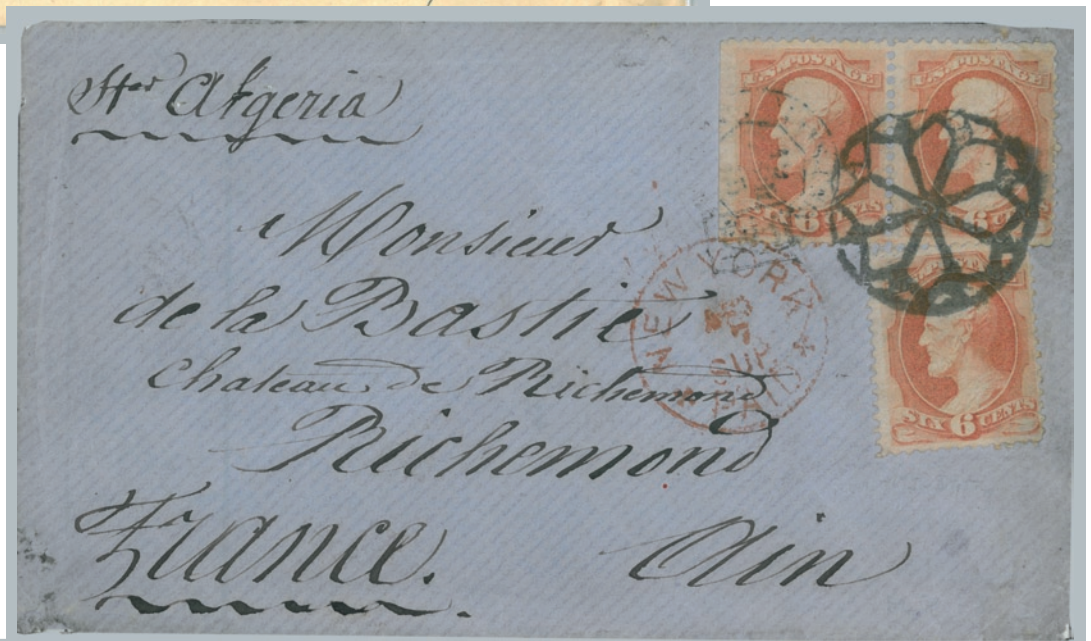 Str Algeria
Monsieur
de la Bastie
Chateau de Richemond
Richemond
France. Ain
U.S. POSTAGE
SIX 6 CENTS
U.S. POSTAGE
6 CENTS
POSTAGE
SIX 6 CENTS
NEW YORK
PAID